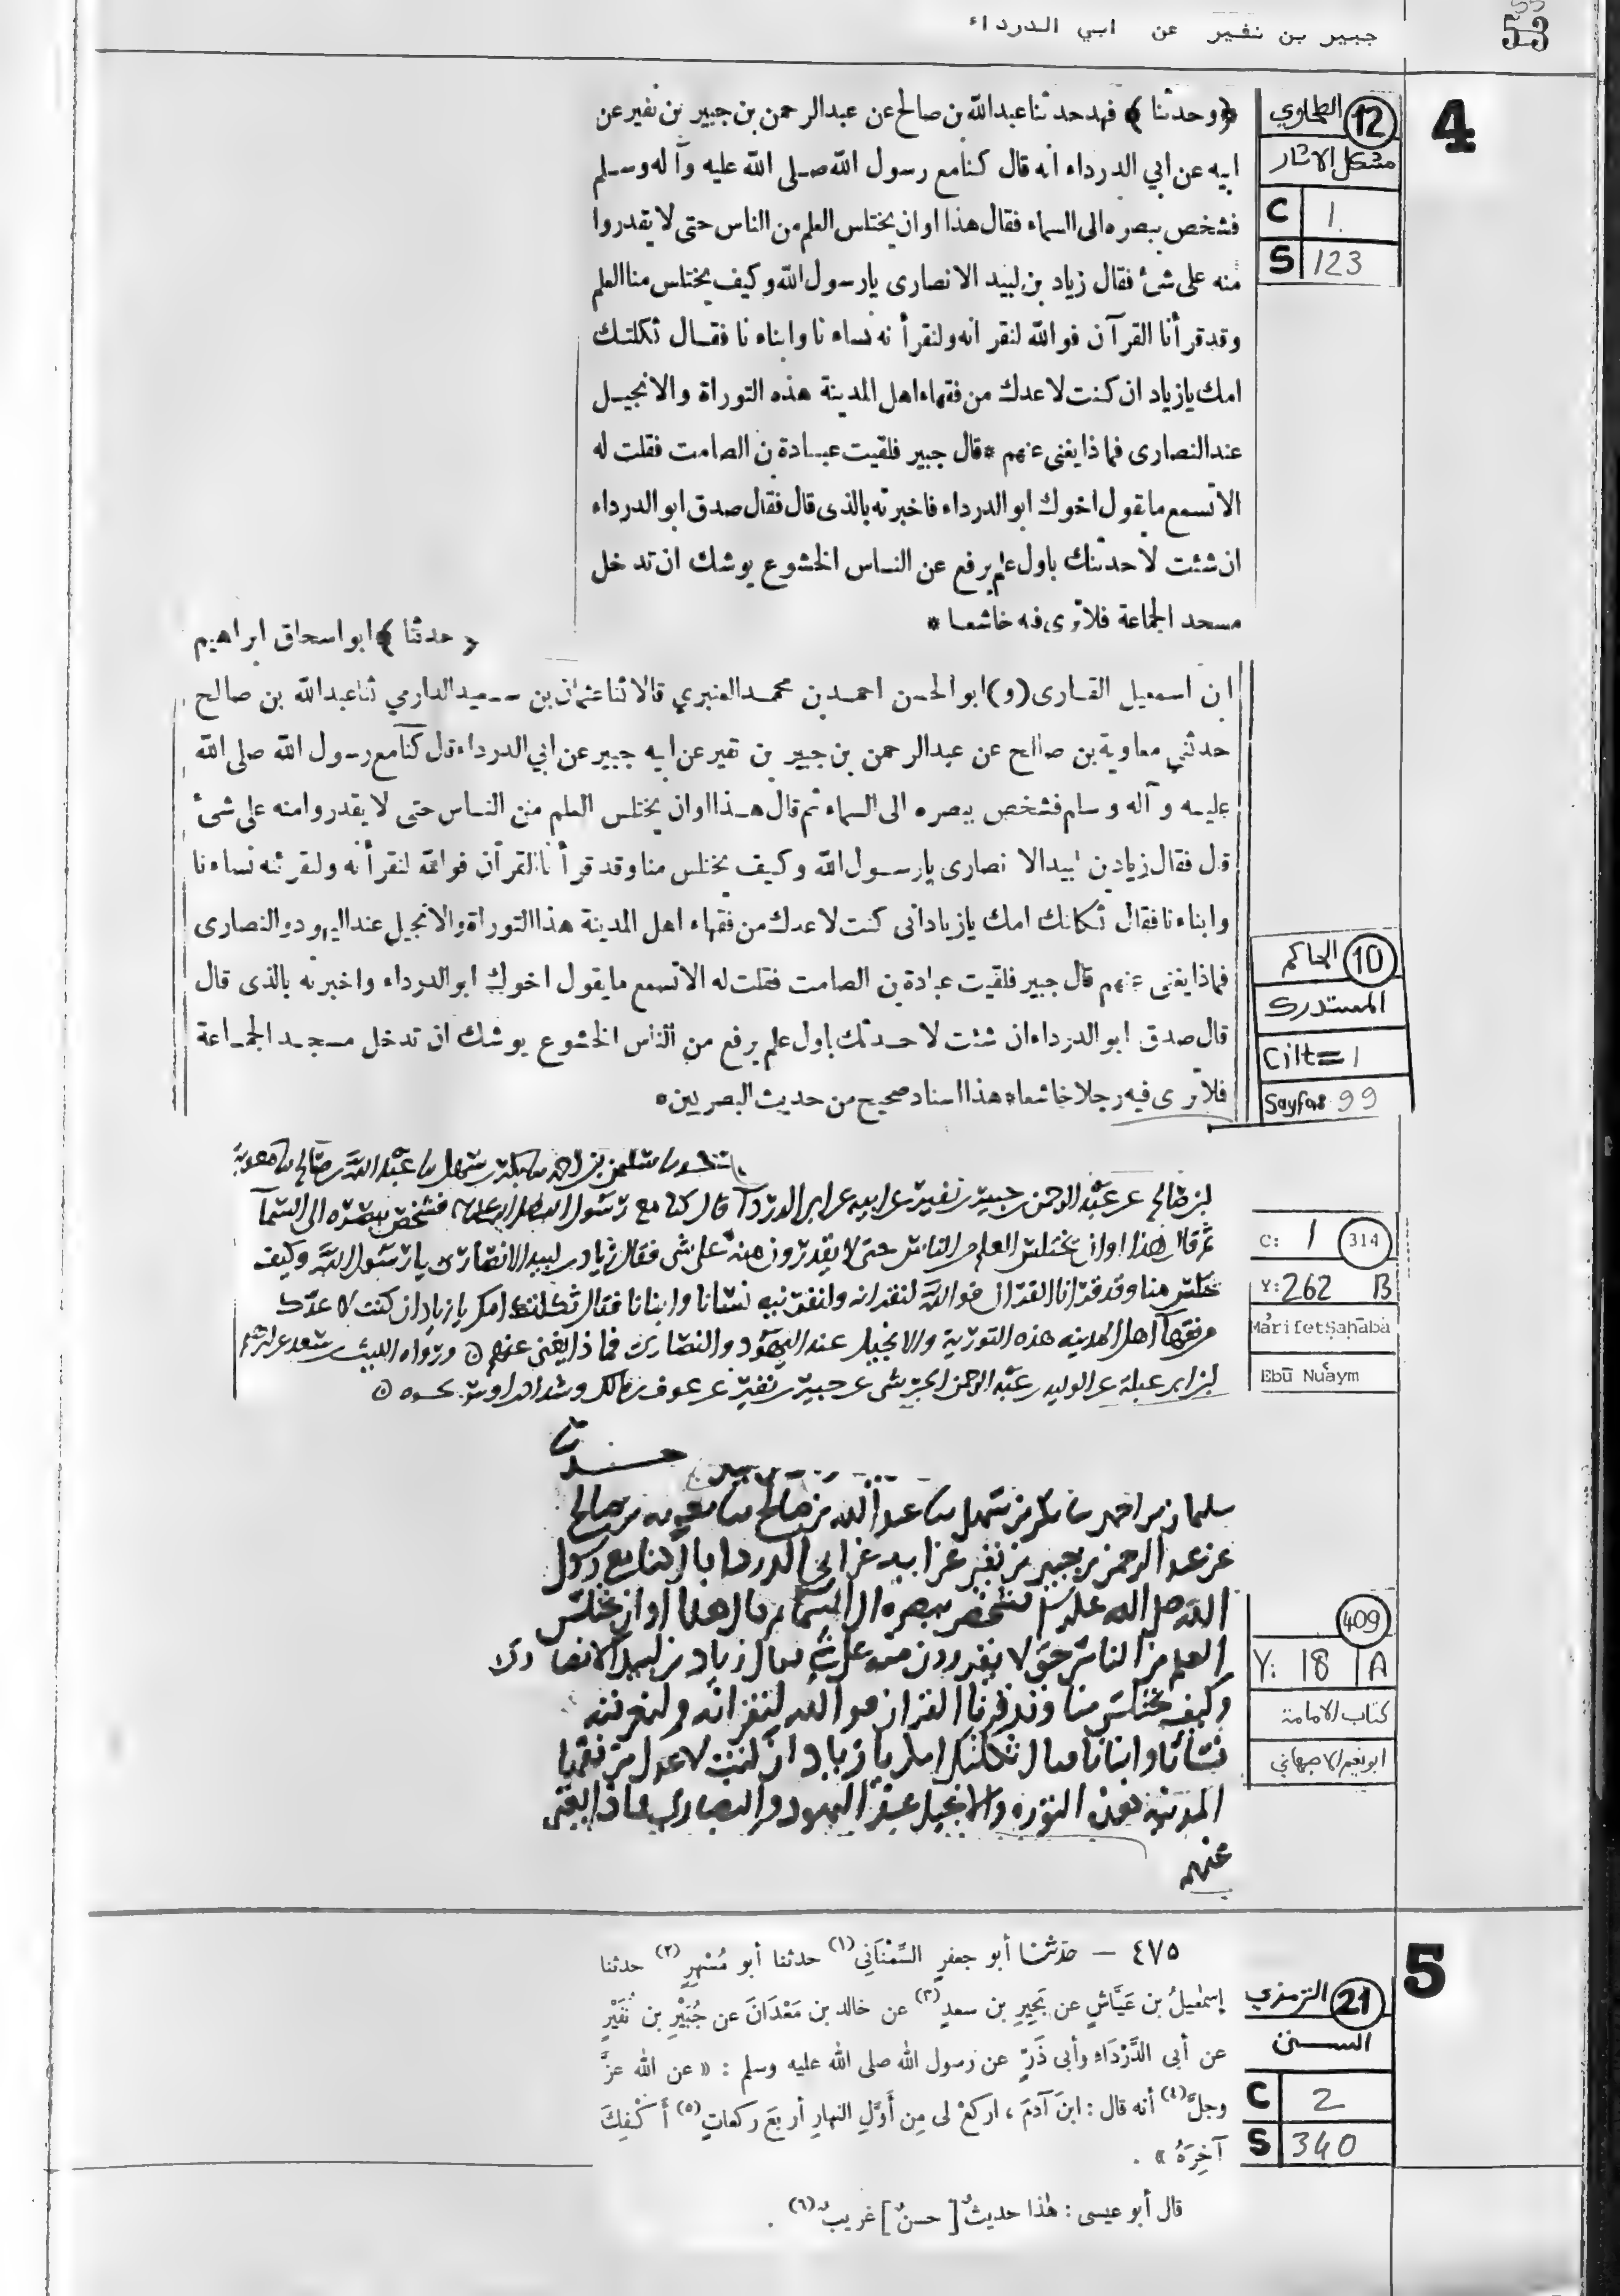 جبير بن نفير عن ابي الدرداء
53
4
12 الطحاوي
مشكل الاثار
C 1
S 123
﴿وحدثنا﴾ فهد حدثنا عبد الله بن صالح عن عبد الرحمن بن جبير بن نفير عن
ابيه عن ابي الدرداء انه قال كنا مع رسول الله صلى الله عليه وآله وسلم
فشخص ببصره الى السماء فقال هذا اوان يختلس العلم من الناس حتى لا يقدروا
منه على شئ فقال زياد بن لبيد الانصارى يارسول الله وكيف يختلس منا العلم
وقد قرأنا القرآن فوالله لنقرانه ولنقرأنه نساءنا وابناءنا فقال ثكلتك
امك يازياد ان كنت لاعدك من فقهاء اهل المدينة هذه التوراة والانجيل
عند النصارى فماذا يغنى عنهم * قال جبير فلقيت عبادة بن الصامت فقلت له
الا تسمع ما يقول اخوك ابو الدرداء فاخبرته بالذى قال فقال صدق ابو الدرداء
ان شئت لاحدثنك باول علم يرفع عن الناس الخشوع يوشك ان تدخل
مسجد الجماعة فلا ترى فيه خاشعا *
﴿حدثنا﴾ ابو اسحاق ابراهيم
ابن اسمعيل القارى (و) ابو الحسن احمد بن محمد العنبري قالا ثنا عثمان بن سعيد الدارمي ثنا عبد الله بن صالح
حدثني معاوية بن صالح عن عبد الرحمن بن جبير بن نفير عن ابيه جبير عن ابي الدرداء قال كنا مع رسول الله صلى الله
عليه وآله وسلم فشخص ببصره الى السماء ثم قال هذا اوان يختلس العلم من الناس حتى لا يقدروا منه على شئ
قال فقال زياد بن لبيد الانصارى يارسول الله وكيف يختلس منا وقد قرأنا القرآن فوالله لنقرأنه ولنقرئنه نساءنا
وابناءنا فقال ثكلتك امك يازياد انى كنت لاعدك من فقهاء اهل المدينة هذا التوراة والانجيل عند اليهود والنصارى
فماذا يغنى عنهم قال جبير فلقيت عبادة بن الصامت فقلت له الا تسمع ما يقول اخوك ابو الدرداء واخبرته بالذى قال
قال صدق ابو الدرداء ان شئت لاحدثنك باول علم يرفع من الناس الخشوع يوشك ان تدخل مسجد الجماعة
فلا ترى فيه رجلا خاشعا * هذا اسناد صحيح من حديث البصريين *
10 الحاكم
المستدرك
Cilt= 1
Sayfa: 99
سليمن بن احمد بكر بن سهل عبد الله بن صالح معوية
بن صالح عن عبد الرحمن بن جبير بن نفير عن ابيه عن ابي الدرداء قال كنا مع رسول الله صلى الله عليه فشخص ببصره الى السمآ
ثم قال هذا اوان يختلس العلم من الناس حتى لا يقدرون منه على شى فقال زياد بن لبيد الانصارى يا رسول الله وكيف
يختلس منا وقد قرانا القران فوالله لنقرانه ولنقرينه نسانا وابنانا فقال ثكلتك امك يا زياد ان كنت لاعدك
من فقهآ اهل المدينه هذه التورية والانجيل عند اليهود والنصارى فماذا يغنى عنهم ورواه الليث بن سعد عن ابرهيم
بن ابي عبلة عن الوليد بن عبد الرحمن الجرشى عن جبير بن نفير عن عوف بن مالك وشداد بن اوس نحوه
C: 1 314
Y: 262 B
Márifet Ṣaḥāba
Ebū Nuáym
حدثنا
سليمان بن احمد بكر بن سهل عبد الله بن صالح معويه بن صالح
عن عبد الرحمن بن جبير بن نفير عن ابيه عن ابي الدرداء قال كنا مع رسول
الله صلى الله عليه وسلم فشخص ببصره الى السما ثم قال هذا اوان يختلس
العلم من الناس حتى لا يقدرون منه على شي فقال زياد بن لبيد الانصاري
وكيف يختلس منا وقد قرانا القران فوالله لنقرانه ولنقرئنه
نسائنا وابنانا فقال ثكلتك امك يا زياد ان كنت لاعدك من فقها
المدينه هذه التوره والانجيل عند اليهود والنصارى فماذا يغنى
عنهم
409
Y: 18 A
كتاب الامامة
ابو نعيم الاصبهاني
5
21 الترمذي
السنن
C 2
S 340
٤٧٥ — حدثنا أبو جعفرٍ السِّمْنَانِي(١) حدثنا أبو مُسْهِرٍ(٢) حدثنا
إسمٰعيلُ بن عَيَّاشٍ عن بَحِيرِ بن سعدٍ(٣) عن خالد بن مَعْدَانَ عن جُبَيْرِ بن نُفَيْرٍ
عن أبى الدَّرْدَاءِ وأبى ذَرٍّ عن رسول الله صلى الله عليه وسلم : « عن الله عزَّ
وجلَّ(٤) أنه قال : ابنَ آدمَ ، اركعْ لى مِن أَوَّلِ النهارِ أربعَ ركعاتٍ(٥) أَكْفِكَ
آخِرَهُ » .
قال أبو عيسى : هٰذا حديثٌ [حسنٌ] غريبٌ(٦) .